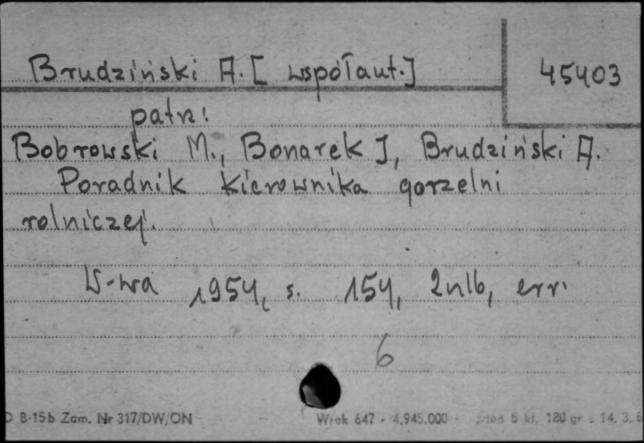 Brudziński A. [współaut.] 45403
patrz:
Bobrowski M., Bonarek J, Brudziński A.
Poradnik kierownika gorzelni
rolniczej.
W-wa 1954, s. 154, 2nlb, err.
6
B-15b Zam. Nr 317/DW/ON Wrok 647 - 4.945.000 5 kl. 120 gr 14. 3.